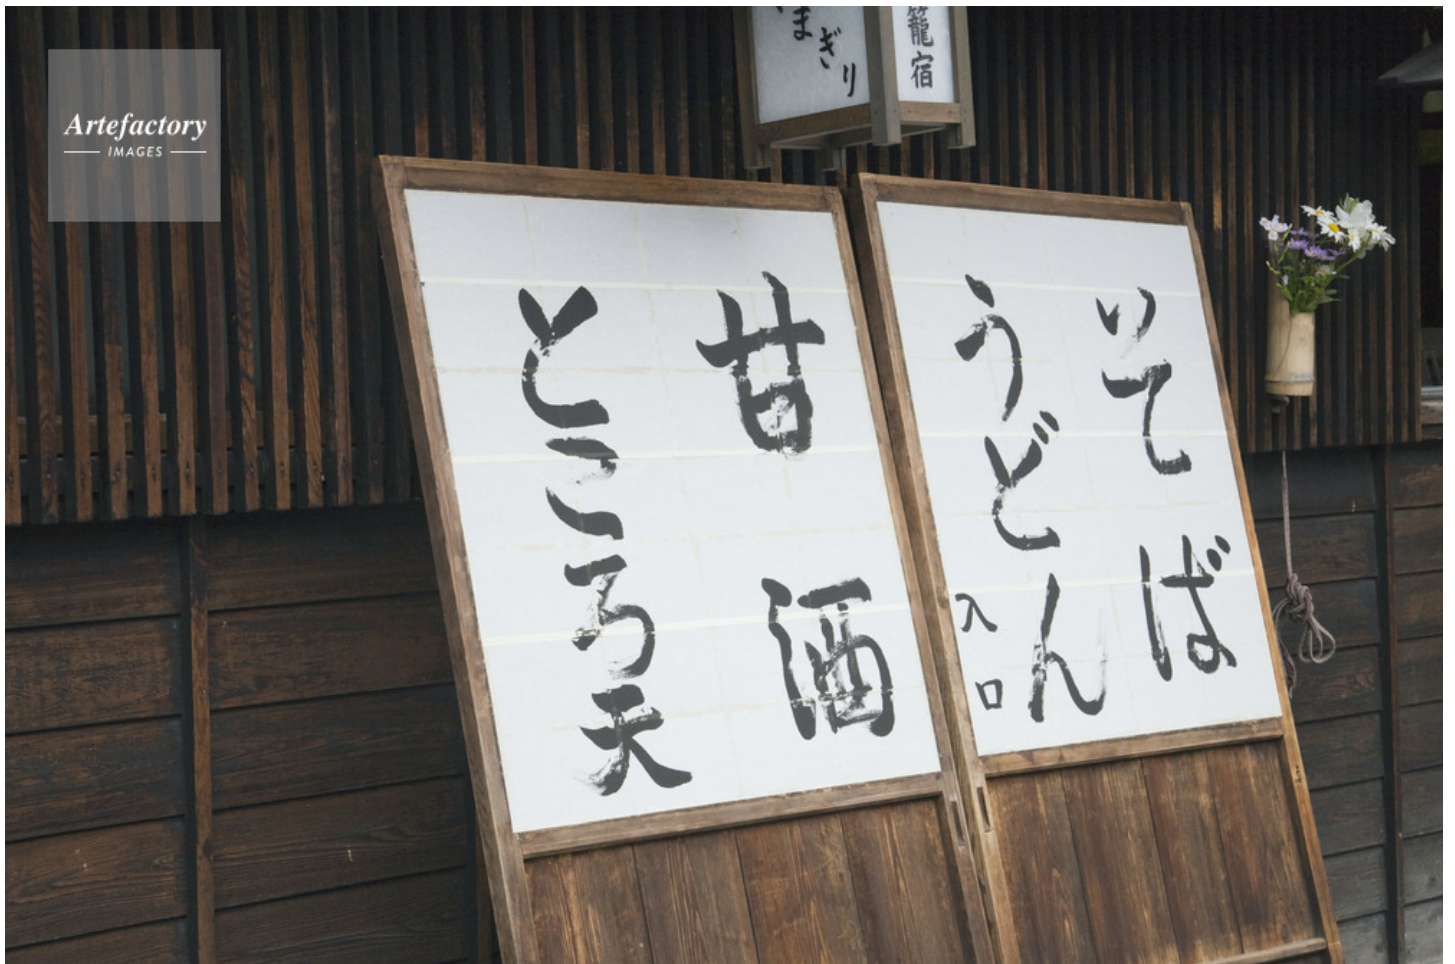 Artefactory
IMAGES
まぎり
籠宿
そば
うどん
入口
甘酒
ところ天